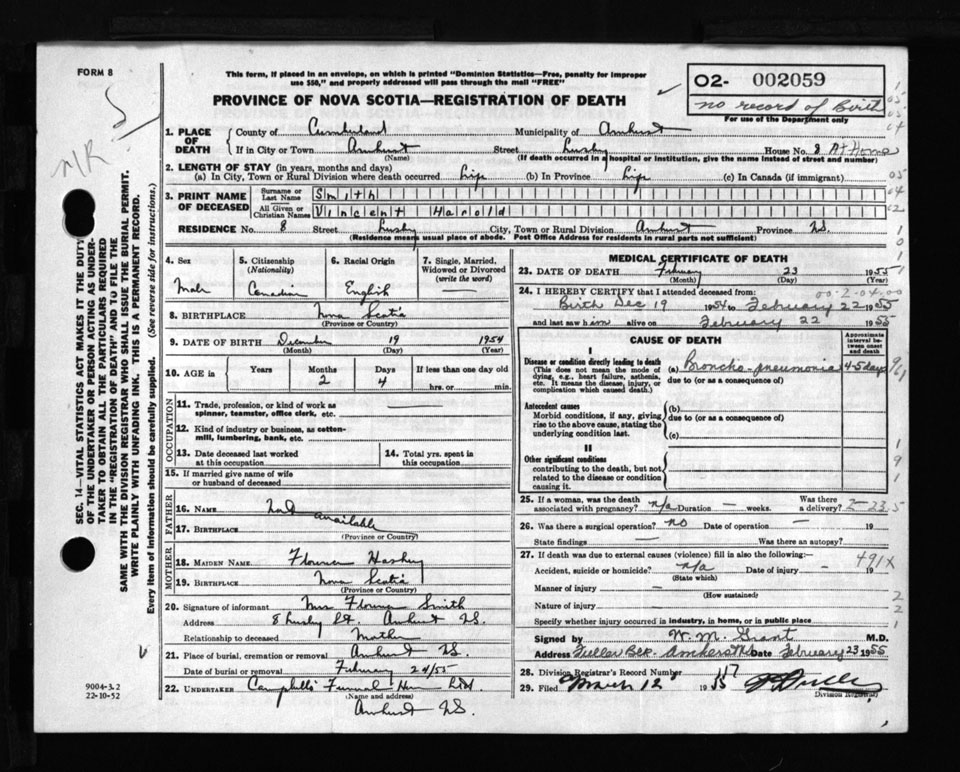 FORM 8
This form, if placed in an envelope, on which is printed "Dominion Statistics—Free, penalty for improper
use $50," and properly addressed will pass through the mail "FREE"
PROVINCE OF NOVA SCOTIA—REGISTRATION OF DEATH
02- 002059
no record of Birth
For use of the Department only
MR
SEC. 14—VITAL STATISTICS ACT MAKES IT THE DUTY
OF THE UNDERTAKER OR PERSON ACTING AS UNDER-
TAKER TO OBTAIN ALL THE PARTICULARS REQUIRED
IN THE "REGISTRATION OF DEATH" AND TO FILE THE
SAME WITH THE DIVISION REGISTRAR WHO SHALL ISSUE THE BURIAL PERMIT.
WRITE PLAINLY WITH UNFADING INK. THIS IS A PERMANENT RECORD.
Every item of information should be carefully supplied. (See reverse side for instructions.)
1. PLACE OF DEATH
County of Cumberland Municipality of Amherst
If in City or Town Amherst Street Lusby House No. 8 At Home
(Name) (If death occurred in a hospital or institution, give the name instead of street and number)
2. LENGTH OF STAY (in years, months and days)
(a) In City, Town or Rural Division where death occurred Life (b) In Province Life (c) In Canada (if immigrant)
3. PRINT NAME OF DECEASED
Surname or Last Name Smith
All Given or Christian Names Vincent Harold
RESIDENCE No. 8 Street Lusby City, Town or Rural Division Amherst Province NS.
(Residence means usual place of abode. Post Office Address for residents in rural parts not sufficient)
4. Sex
Male
5. Citizenship (Nationality)
Canadian
6. Racial Origin
English
7. Single, Married, Widowed or Divorced (write the word)
8. BIRTHPLACE Nova Scotia
(Province or Country)
9. DATE OF BIRTH December 19 1954
(Month) (Day) (Year)
10. AGE in Years Months Days If less than one day old
2 4 hrs. or min.
OCCUPATION
11. Trade, profession, or kind of work as
spinner, teamster, office clerk, etc.
12. Kind of industry or business, as cotton-
mill, lumbering, bank, etc.
13. Date deceased last worked at this occupation
14. Total yrs. spent in this occupation
15. If married give name of wife
or husband of deceased
FATHER
16. Name Not available
17. BIRTHPLACE
(Province or Country)
MOTHER
18. MAIDEN NAME Florence
19. BIRTHPLACE Nova Scotia
(Province or Country)
20. Signature of informant Mrs Florence Smith
Address 8 Lusby St. Amherst NS.
Relationship to deceased Mother
21. Place of burial, cremation or removal Amherst NS
Date of burial or removal February 24/55
22. UNDERTAKER Campbells Funeral Home Ltd.
(Name and address)
Amherst NS.
9004-3.2
22-10-52
MEDICAL CERTIFICATE OF DEATH
23. DATE OF DEATH February 23 1955
(Month) (Day) (Year)
24. I HEREBY CERTIFY that I attended deceased from: 00-2-04-00
Birth Dec 19 1954 to February 22 1955
and last saw him alive on February 22 1955
CAUSE OF DEATH
Approximate interval between onset and death
I
Disease or condition directly leading to death
(This does not mean the mode of
dying, e.g., heart failure, asthenia,
etc. It means the disease, injury, or
complication which caused death.)
(a) Broncho-pneumonia 4-5 days
due to (or as a consequence of)
Antecedent causes
Morbid conditions, if any, giving
rise to the above cause, stating the
underlying condition last.
(b)
due to (or as a consequence of)
(c)
II
Other significant conditions
contributing to the death, but not
related to the disease or condition
causing it.
25. If a woman, was the death
associated with pregnancy? n/a Duration — weeks. Was there a delivery?
2-23-5
26. Was there a surgical operation? no Date of operation — 19
State findings — Was there an autopsy?
27. If death was due to external causes (violence) fill in also the following:—
491X
Accident, suicide or homicide? n/a Date of injury - 19
(State which)
Manner of injury —
(How sustained)
Nature of injury —
Specify whether injury occurred in industry, in home, or in public place
Signed by W. M. Grant M.D.
Address Fuller Blk. Amherst NS Date February 23 1955
28. Division Registrar's Record Number 117
29. Filed March 12 1955
Division Registrar